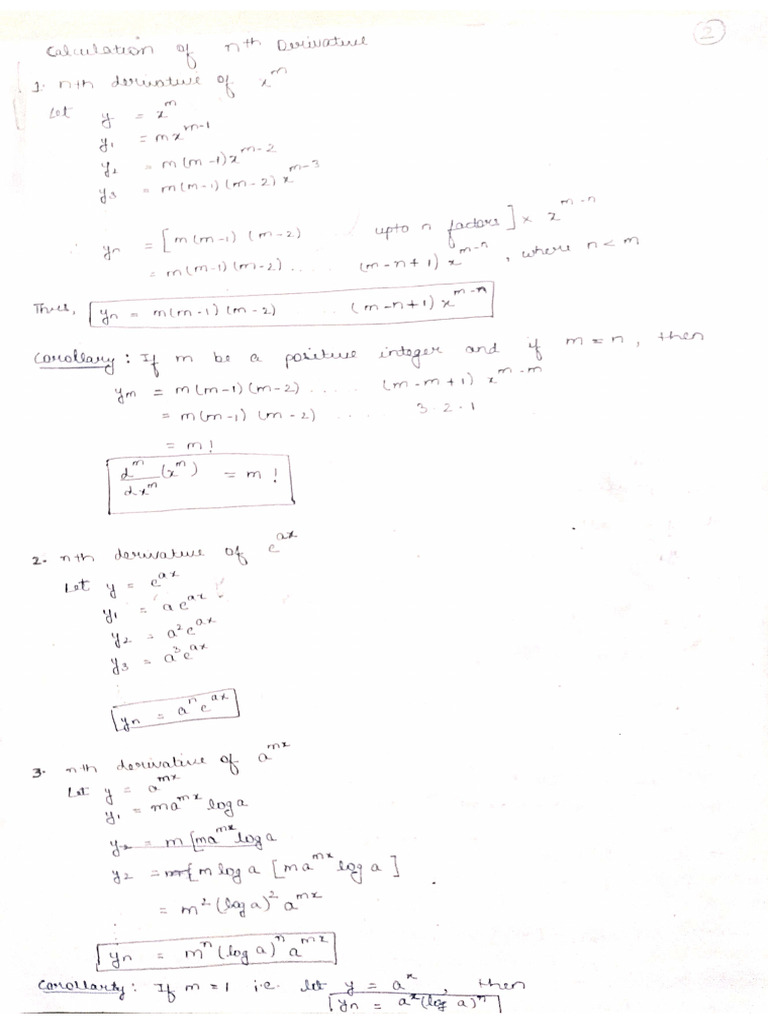 2
Calculation of nth Derivative
1. nth derivative of x^m
Let y = x^m
y₁ = mx^{m-1}
y₂ = m(m-1)x^{m-2}
y₃ = m(m-1)(m-2)x^{m-3}
∴ yₙ = [m(m-1)(m-2) upto n factors] × x^{m-n}
= m(m-1)(m-2).... (m-n+1)x^{m-n}, where n<m
Thus, yₙ = m(m-1)(m-2) (m-n+1)x^{m-n}
Corollary: If m be a positive integer and if m=n, then
yₘ = m(m-1)(m-2).... (m-m+1) x^{m-m}
= m(m-1)(m-2).... 3.2.1
= m!
d^m/dx^m (x^m) = m!
2. nth derivative of e^{ax}
Let y = e^{ax}
y₁ = ae^{ax}
y₂ = a²e^{ax}
y₃ = a³e^{ax}
yₙ = aⁿe^{ax}
3. nth derivative of a^{mx}
Let y = a^{mx}
y₁ = ma^{mx} log a
y₂ = m[ma^{mx} log a
y₂ = m log a [ma^{mx} log a]
= m²(log a)² a^{mx}
yₙ = mⁿ(log a)ⁿ a^{mx}
Corollarty: If m=1 i.e. let y = a^x, then
yₙ = a^x(log a)ⁿ